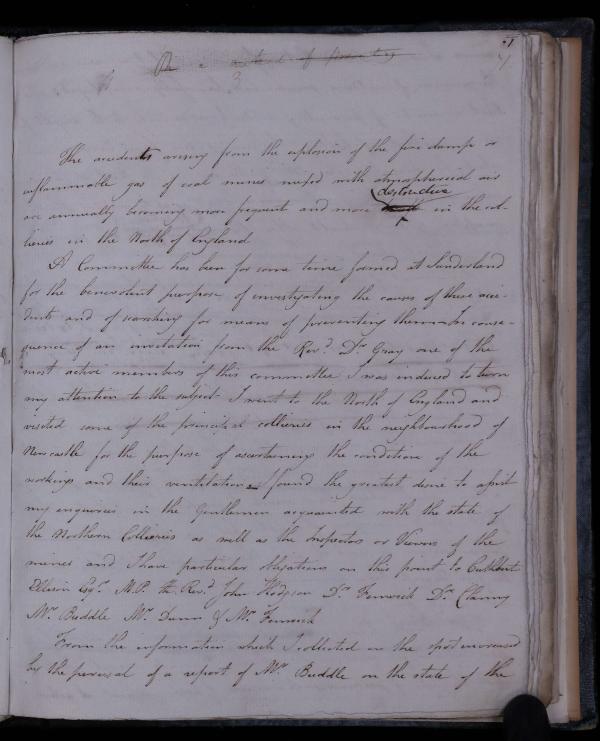 7
3
The accidents arising from the explosion of the fire damp or
inflammable gas of coal mines mixed with atmospherical air
destructive
are annually becoming more frequent and more in the col-
lieries in the North of England
A Committee has been for some time formed at Sunderland
for the benevolent purpose of investigating the causes of these acci-
dents and of searching for means of preventing them – In conse-
quence of an invitation from the Revd. Dr. Gray one of the
most active members of this committee I was induced to turn
my attention to the subject I went to the North of England and
visited some of the principal collieries in the neighbourhood of
Newcastle for the purpose of ascertaining the condition of the
workings and their ventilation. I found the greatest desire to assist
my enquiries in the Gentlemen acquainted with the state of
the Northern Collieries as well as the Inspectors or Viewers of the
mines and I have particular obligations on this point to Cuthbert
Ellison Esqr. M.P. the Revd. John Hodgson Dr. Fenwick Dr. Clanny
Mr. Buddle Mr. Dunn & Mr. Fenwick
From the information which I collected on the spot increased
by the perusal of a report of Mr. Buddle on the state of the